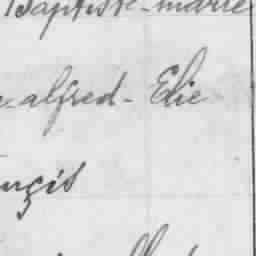 Baptiste-marie
alfred-Elie
ançois